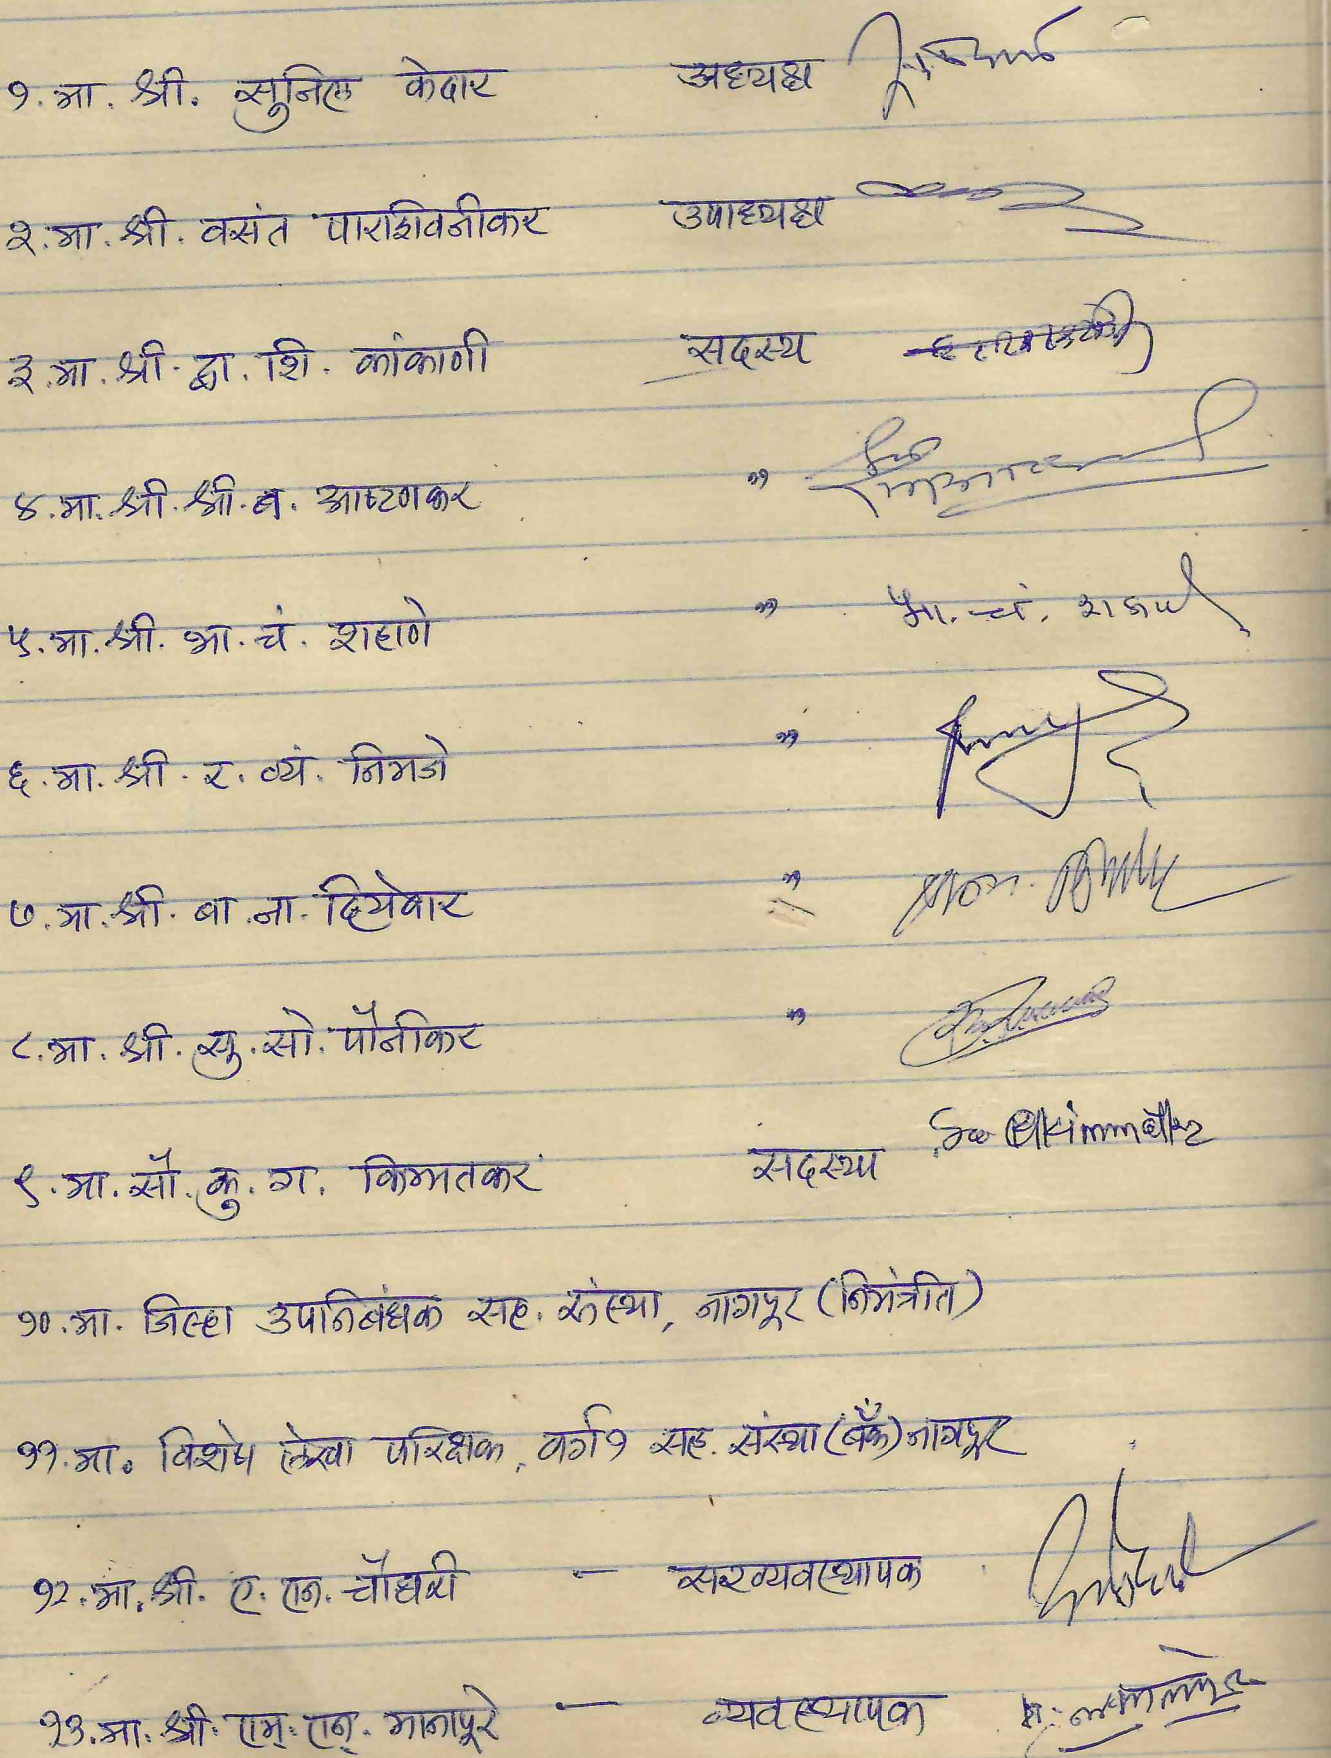 १. मा. श्री. सुनिल केदार अध्यक्ष
२. मा. श्री. वसंत पारशिवनीकर उपाध्यक्ष
३. मा. श्री. द्वा. शि. कांकाणी सदस्य
४. मा. श्री. श्री. ब. आष्टणकर "
५. मा. श्री. भा. चं. शहाणे " भा. चं. शहाणे
६. मा. श्री. र. व्यं. निमजे "
७. मा. श्री. बा. ना. दियेवार "
८. मा. श्री. सु. सो. पौनीकर "
९. मा. सौ. कु. ग. किम्मतकर सदस्या
१०. मा. जिल्हा उपनिबंधक सह. संस्था, नागपूर (निमंत्रीत)
११. मा. विशेष लेखा परिक्षक, वर्ग १ सह. संस्था (बँक) नागपूर
१२. मा. श्री. ए. एन. चौधरी - सरव्यवस्थापक
१३. मा. श्री. एम्. एन्. मानापूरे - व्यवस्थापक